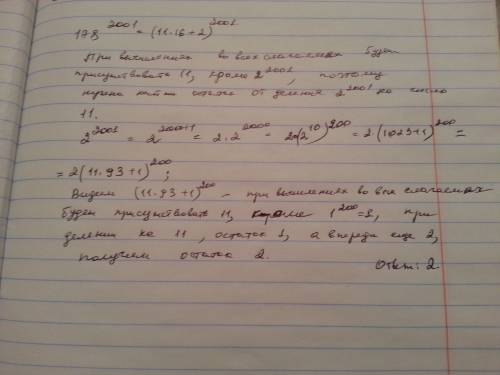 178^2001 = (11·16+2)^2001
При вычислениях во всех слагаемых будет
присутствовать 11, кроме 2^2001, поэтому
нужно найти остаток от деления 2^2001 на число
11.
2^2001 = 2^2000+1 = 2·2^2000 = 2·(2^10)^200 = 2·(1023+1)^200 =
= 2(11·93+1)^200;
Видим (11·93+1)^200 – при вычислениях во всех слагаемых
будет присутствовать 11, кроме 1^200=1, при
делении на 11, остаток 1, а впереди еще 2,
получаем остаток 2.
Ответ: 2.